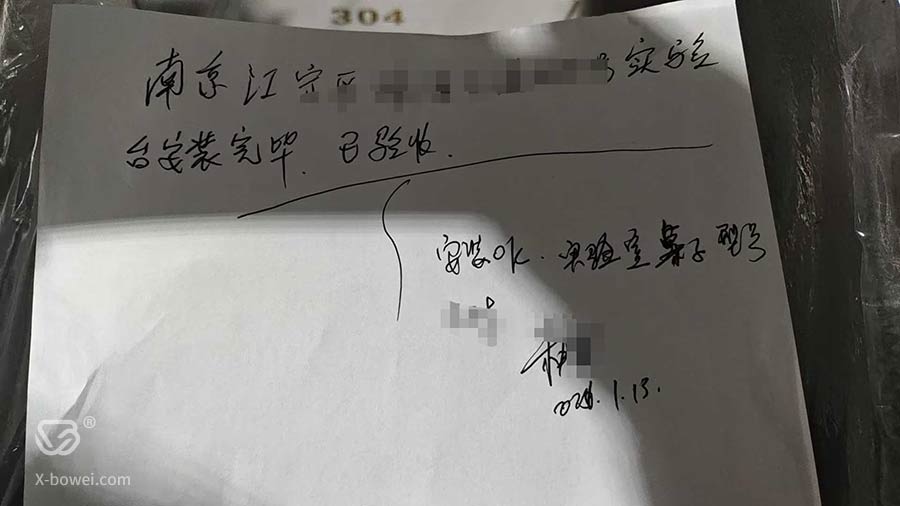 304
南京江宁 实验
台安装完毕. 已验收.
安装OK. 实验室桌子
1.13.
®
X-bowei.com